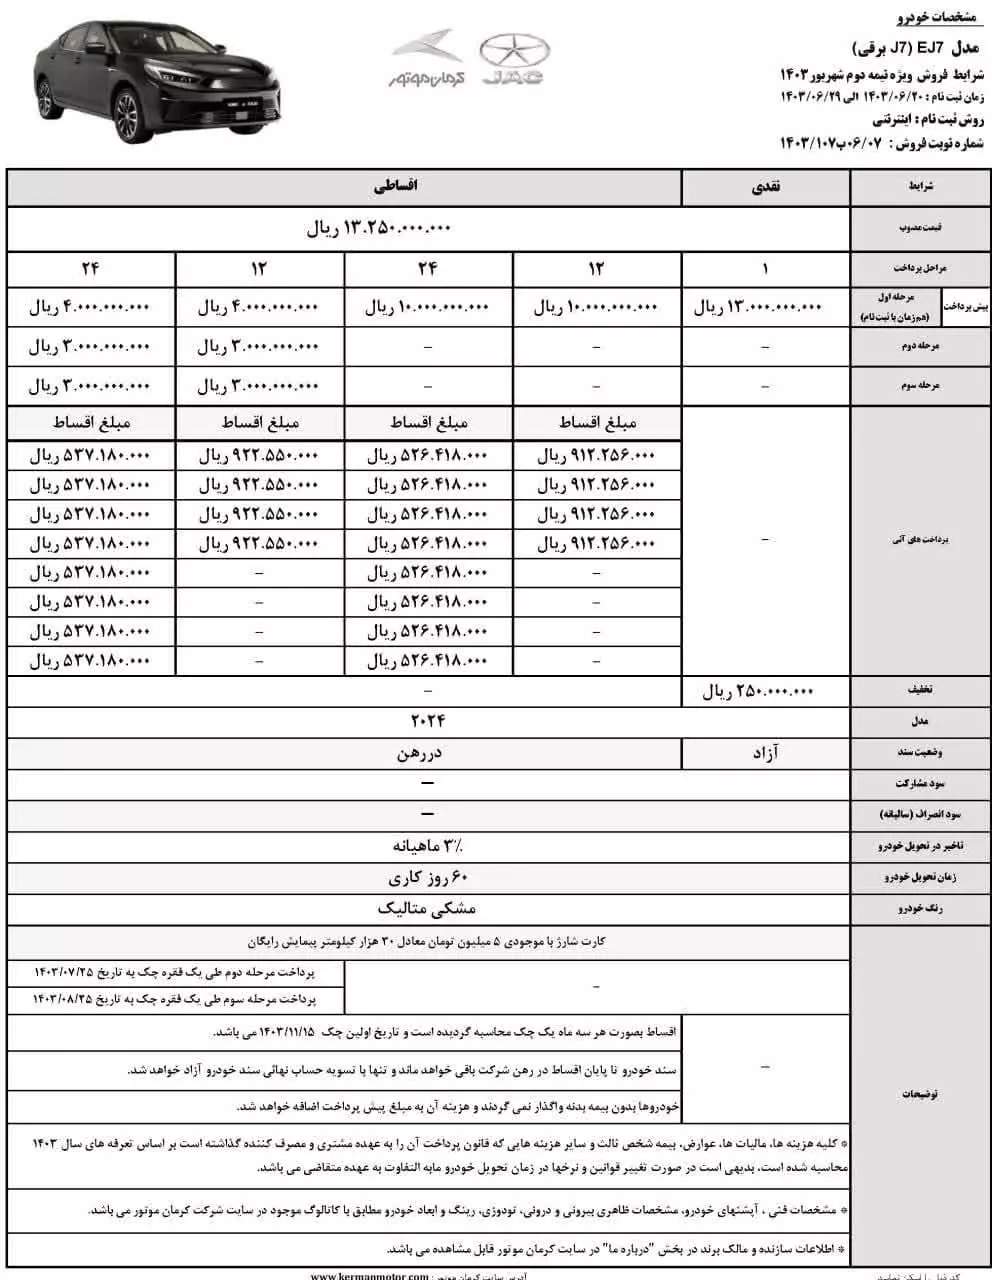 مشخصات خودرو
مدل EJ7 (J7 برقی)
شرایط فروش ویژه نیمه دوم شهریور ۱۴۰۳
زمان ثبت نام : ۱۴۰۳/۰۶/۲۰ الی ۱۴۰۳/۰۶/۲۹
روش ثبت نام : اینترنتی
شماره نوبت فروش : ۰۶/۰۷ب۱۴۰۳/۱۰۷
JAC
کرمان موتور
شرایط نقدی اقساطی
قیمت مصوب ۱۳.۲۵۰.۰۰۰.۰۰۰ ریال
مراحل پرداخت ۱ ۱۲ ۲۴ ۱۲ ۲۴
پیش پرداخت مرحله اول (هم زمان با ثبت نام) ۱۳.۰۰۰.۰۰۰.۰۰۰ ریال ۱۰.۰۰۰.۰۰۰.۰۰۰ ریال ۱۰.۰۰۰.۰۰۰.۰۰۰ ریال ۴.۰۰۰.۰۰۰.۰۰۰ ریال ۴.۰۰۰.۰۰۰.۰۰۰ ریال
مرحله دوم – – – ۳.۰۰۰.۰۰۰.۰۰۰ ریال ۳.۰۰۰.۰۰۰.۰۰۰ ریال
مرحله سوم – – – ۳.۰۰۰.۰۰۰.۰۰۰ ریال ۳.۰۰۰.۰۰۰.۰۰۰ ریال
مبلغ اقساط مبلغ اقساط مبلغ اقساط مبلغ اقساط
۹۱۲.۲۵۶.۰۰۰ ریال ۵۲۶.۴۱۸.۰۰۰ ریال ۹۲۲.۵۵۰.۰۰۰ ریال ۵۳۷.۱۸۰.۰۰۰ ریال
۹۱۲.۲۵۶.۰۰۰ ریال ۵۲۶.۴۱۸.۰۰۰ ریال ۹۲۲.۵۵۰.۰۰۰ ریال ۵۳۷.۱۸۰.۰۰۰ ریال
۹۱۲.۲۵۶.۰۰۰ ریال ۵۲۶.۴۱۸.۰۰۰ ریال ۹۲۲.۵۵۰.۰۰۰ ریال ۵۳۷.۱۸۰.۰۰۰ ریال
پرداخت های آتی – ۹۱۲.۲۵۶.۰۰۰ ریال ۵۲۶.۴۱۸.۰۰۰ ریال ۹۲۲.۵۵۰.۰۰۰ ریال ۵۳۷.۱۸۰.۰۰۰ ریال
– ۵۲۶.۴۱۸.۰۰۰ ریال – ۵۳۷.۱۸۰.۰۰۰ ریال
– ۵۲۶.۴۱۸.۰۰۰ ریال – ۵۳۷.۱۸۰.۰۰۰ ریال
– ۵۲۶.۴۱۸.۰۰۰ ریال – ۵۳۷.۱۸۰.۰۰۰ ریال
– ۵۲۶.۴۱۸.۰۰۰ ریال – ۵۳۷.۱۸۰.۰۰۰ ریال
تخفیف ۲۵۰.۰۰۰.۰۰۰ ریال –
مدل ۲۰۲۴
وضعیت سند آزاد در رهن
سود مشارکت –
سود انصراف (سالیانه) –
تاخیر در تحویل خودرو ۳٪ ماهیانه
زمان تحویل خودرو ۶۰ روز کاری
رنگ خودرو مشکی متالیک
توضیحات
کارت شارژ با موجودی ۵ میلیون تومان معادل ۳۰ هزار کیلومتر پیمایش رایگان
– پرداخت مرحله دوم طی یک فقره چک به تاریخ ۱۴۰۳/۰۷/۲۵
پرداخت مرحله سوم طی یک فقره چک به تاریخ ۱۴۰۳/۰۸/۲۵
اقساط بصورت هر سه ماه یک چک محاسبه گردیده است و تاریخ اولین چک ۱۴۰۳/۱۱/۱۵ می باشد.
– سند خودرو تا پایان اقساط در رهن شرکت باقی خواهد ماند و تنها با تسویه حساب نهائی سند خودرو آزاد خواهد شد.
خودروها بدون بیمه بدنه واگذار نمی گردند و هزینه آن به مبلغ پیش پرداخت اضافه خواهد شد.
* کلیه هزینه ها، مالیات ها، عوارض، بیمه شخص ثالث و سایر هزینه هایی که قانون پرداخت آن را به عهده مشتری و مصرف کننده گذاشته است بر اساس تعرفه های سال ۱۴۰۳
محاسبه شده است، بدیهی است در صورت تغییر قوانین و نرخها در زمان تحویل خودرو مابه التفاوت به عهده متقاضی می باشد.
* مشخصات فنی ، آپشنهای خودرو، مشخصات ظاهری بیرونی و درونی، تودوزی، رینگ و ابعاد خودرو مطابق با کاتالوگ موجود در سایت شرکت کرمان موتور می باشد.
* اطلاعات سازنده و مالک برند در بخش "درباره ما" در سایت کرمان موتور قابل مشاهده می باشد.
آدرس سایت کرمان موتور : www.kermanmotor.com